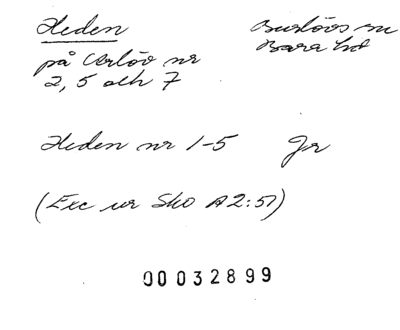 Heden
Burlövs sn
Bara hd
på Arlöv nr
2, 5 och 7
Heden nr 1-5 Jr
(Exc ur Sko A2:51)
00032899